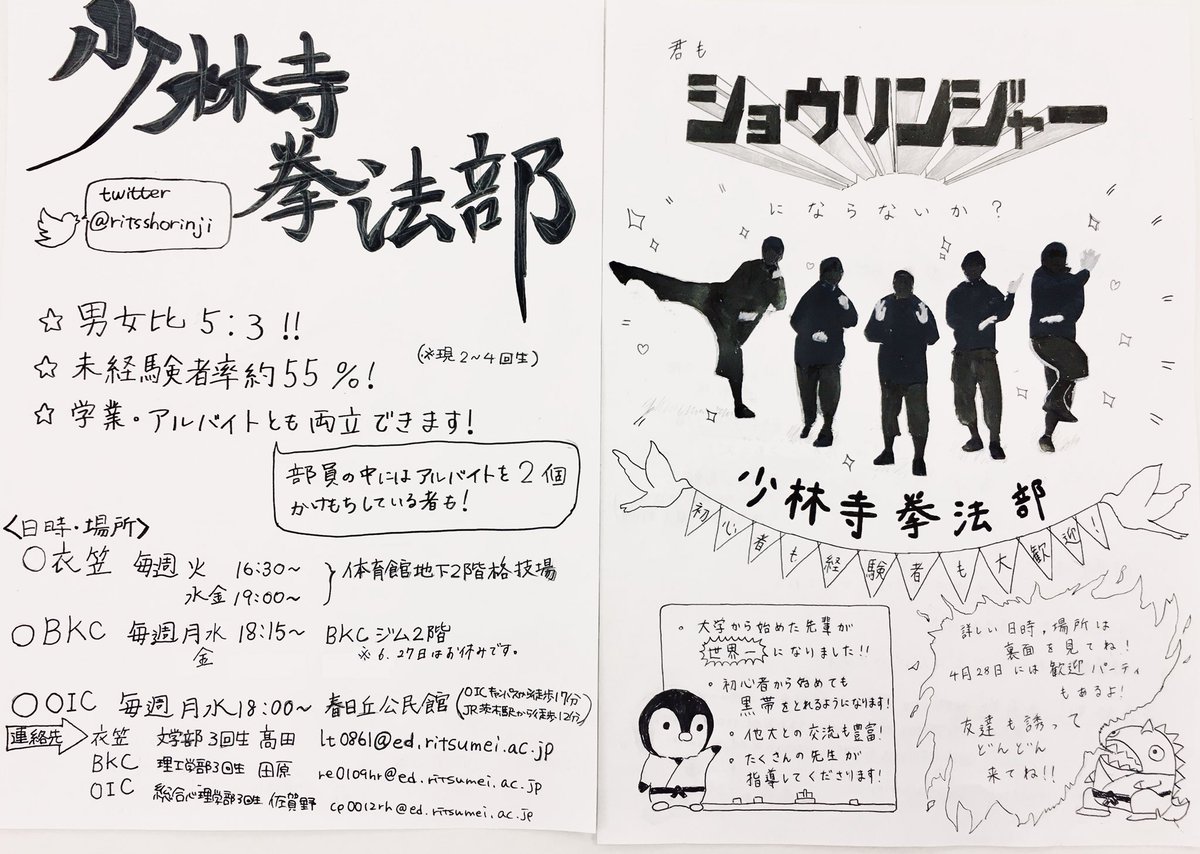 少林寺
拳法部
twitter
@ritsshorinji
☆ 男女比 5:3!!
☆ 未経験者率約55%!
(※現2~4回生)
☆ 学業・アルバイトとも両立できます!
部員の中にはアルバイトを2個
かけもちしている者も!
<日時・場所>
○衣笠 毎週 火 16:30~
水金 19:00~
体育館地下2階格技場
○BKC 毎週月水 18:15~ BKCジム2階
金
※6.27日はお休みです。
○OIC 毎週月水 18:00~ 春日丘公民館
(OICキャンパスから徒歩17分
JR茨木駅から徒歩12分)
連絡先
衣笠 文学部3回生 高田 lt0861@ed.ritsumei.ac.jp
BKC 理工学部3回生 田原 re0109hr@ed.ritsumei.ac.jp
OIC 総合心理学部3回生 佐賀野 cp0012rh@ed.ritsumei.ac.jp
君も
ショウリンジャー
にならないか?
少林寺拳法部
初心者も経験者も大歓迎!
・大学から始めた先輩が
世界一になりました!!
・初心者から始めても
黒帯をとれるようになります!
・他大との交流も豊富!
・たくさんの先生が
指導してくださります!
詳しい日時,場所は
裏面を見てね!
4月28日には歓迎パーティ
もあるよ!
友達も誘って
どんどん
来てね!!